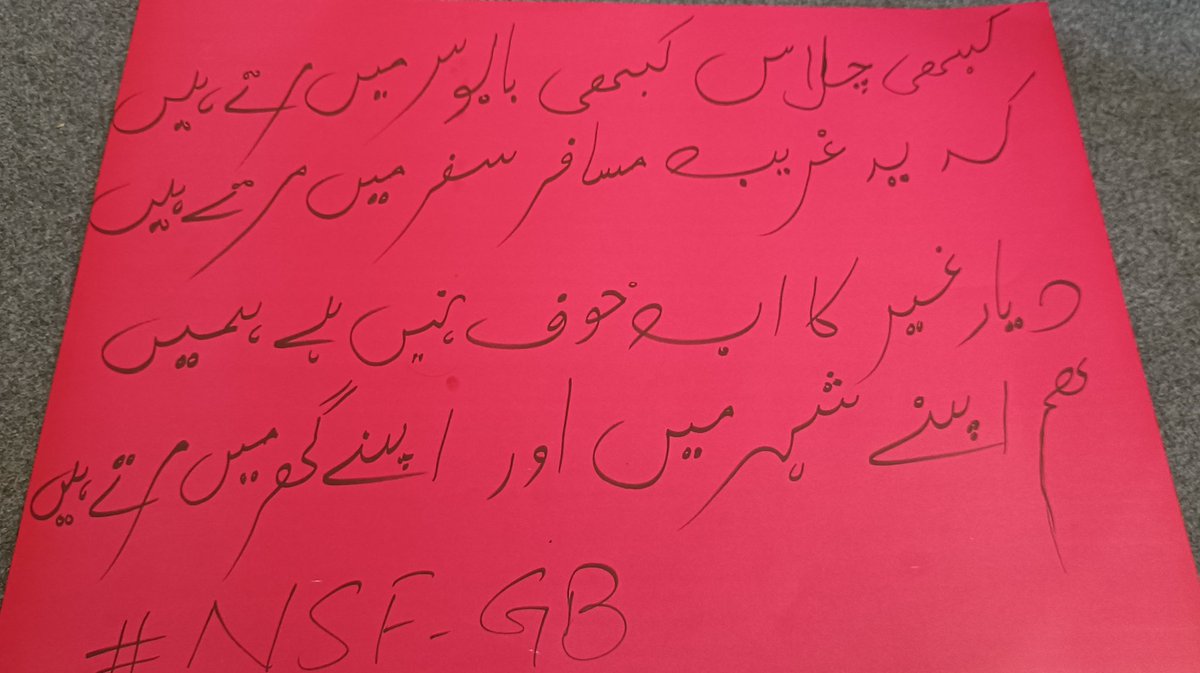 کبھی چلاس کبھی بابوسر میں مرتے ہیں
کہ یہ غریب مسافر سفر میں مرتے ہیں
دیار غیر کا اب خوف نہیں ہے ہمیں
ہم اپنے شہر میں اور اپنے گھر میں مرتے ہیں
#NSF-GB